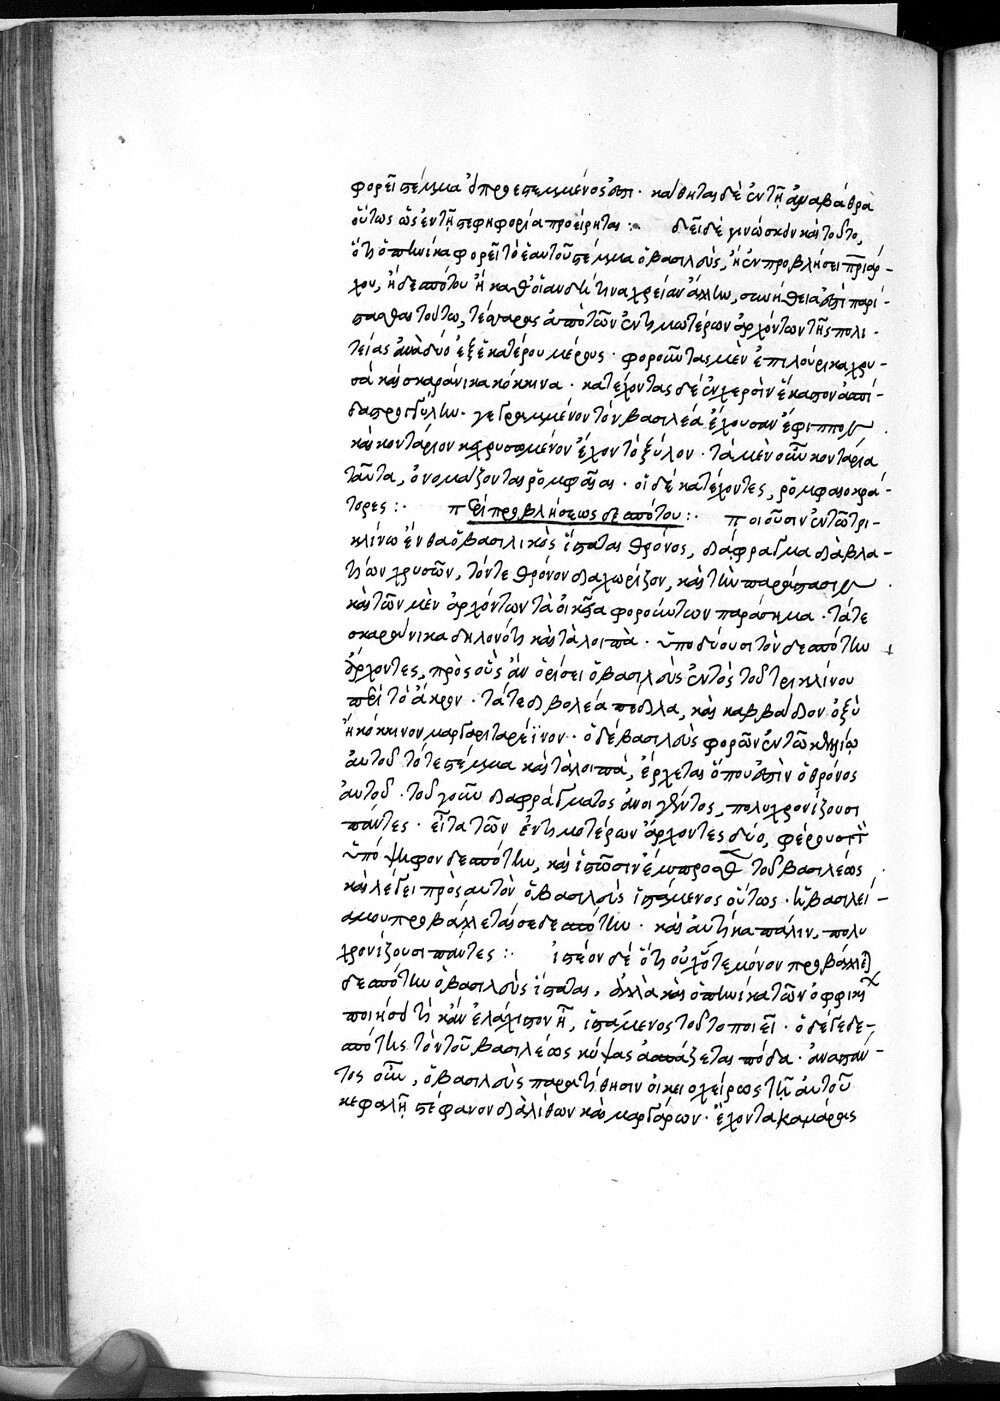 φορεῖ στέμμα ὁ προεστεμμένος ἐστι. κάθηται δὲ ἐν τῇ ἀναβάθρα
οὕτως ὡς ἐν τῇ στεφηφορία προείρηται :· δεῖ δὲ γινώσκειν καὶ τοῦτο,
ὅτι ὁπηνίκα φορεῖ τὸ ἑαυτοῦ στέμμα ὁ βασιλεὺς, ἢ ἐν προβλήσει πριάρ-
χου, ἢ δεσπότου ἢ καθ' οἵαν δή τινα χρείαν ἄλλην, συνήθειά ἐστι παρί-
στασθαι τούτω, τέσσαρας ἀπὸ τῶν ἐντιμωτέρων ἀρχόντων τῆς πολι-
τείας ἀνὰ δύο ἐξ ἑκατέρου μέρους. φοροῦντας μὲν ἐπιλούρικα χρυ-
σᾶ καὶ σκαράνικα κόκκινα. κατέχοντας δὲ ἐν χερσὶν ἕκαστον ἀσπί-
δα στρογγύλην. γεγραμμένον τὸν βασιλέα ἔχουσαν ἔφιππον.
καὶ κοντάριον κεχρυσωμένον ἔχον τὸ ξύλον. τὰ μὲν οὖν κοντάρια
ταῦτα, ὀνομάζονται ῥομφαῖαι. οἱ δὲ κατέχοντες, ῥομφαιοκρά-
τορες :· περὶ προβλήσεως δεσπότου :· ποιοῦσιν ἐν τῶ τρι-
κλίνω ἔνθα ὁ βασιλικὸς ἵσταται θρόνος, διάφραγμα διὰ βλα-
τίων χρυσῶν, τόν τε θρόνον διαχωρίζον, καὶ τὴν παράστασιν.
καὶ τῶν μὲν ἀρχόντων τὰ οἰκεῖα φορούντων παράσημα. τά τε
σκαράνικα δηλονότι καὶ τὰ λοιπὰ. ὑποδύουσι τὸν δεσπότην
ἄρχοντες, πρὸς οὓς ἂν ὁρίσει ὁ βασιλεὺς ἐντὸς τοῦ τρικλίνου
περὶ τὸ ἄκρον. τά τε διβολέα πέδιλα, καὶ καββάδιον ὀξὺ
ἢ κόκκινον μαργαριταρέϊνον. ὁ δὲ βασιλεὺς φορῶν ἐν τῶ κελλίω
αὐτοῦ τό τε στέμμα καὶ τὰ λοιπὰ, ἔρχεται ὅπου ἐστὶν ὁ θρόνος
αὐτοῦ. τοῦ γοῦν διαφράγματος ἀνοιγέντος, πολυχρονίζουσι
πάντες. εἶτα τῶν ἐντιμοτέρων ἄρχοντες δύο, φέρουσι τὸν
ὑπόψηφον δεσπότην, καὶ ἱστῶσιν ἔμπροσθεν τοῦ βασιλέως
καὶ λέγει πρὸς αὐτὸν ὁ βασιλεὺς ἱστάμενος οὕτως. ἡ βασιλεί-
α μου προβάλλεταί σε δεσπότην. καὶ αὐτίκα πάλιν, πολυ
χρονίζουσι πάντες :· ἰστέον δὲ ὅτι οὐχ ὅτε μόνον προβάλλει
δεσπότην ὁ βασιλεὺς ἵσταται, ἀλλὰ καὶ ὁπηνίκα τῶν ὀφφικίων
ποιήσει τὶ κἂν ἐλάχιστον ᾖ, ἱστάμενος τοῦτο ποιεῖ. ὁ δέ γε δε-
σπότης τὸν τοῦ βασιλέως κύψας ἀσπάζεται πόδα. ἀναστάν-
τος οὖν, ὁ βασιλεὺς παρατίθησιν οἰκειοχείρως τῆ αὐτοῦ
κεφαλῆ στέφανον διὰ λίθων καὶ μαργάρων. ἔχοντα καμάρας